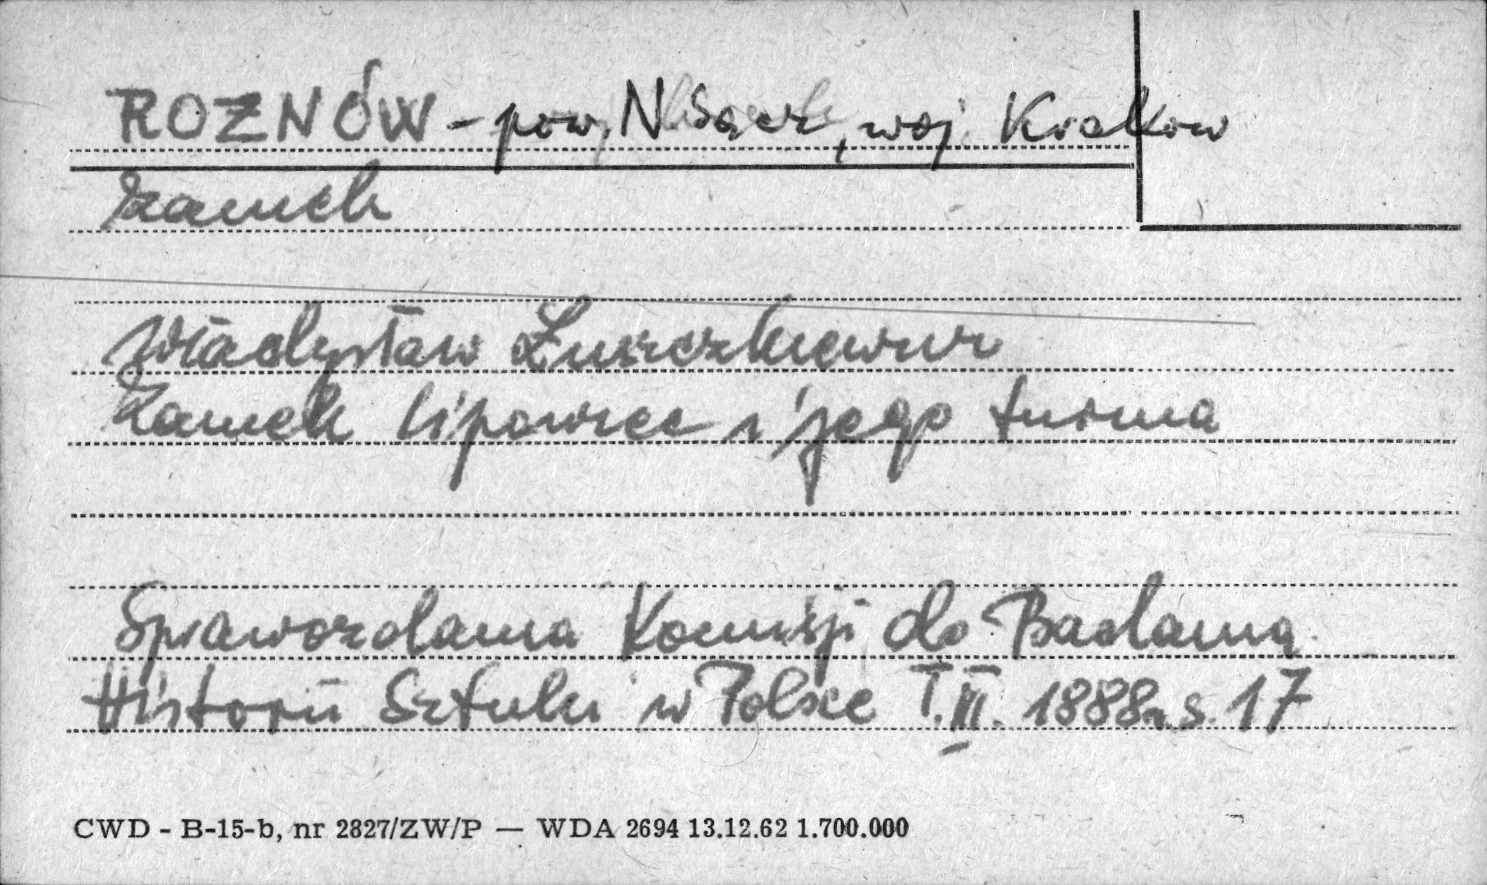 ROZNÓW - pow. N Sącz, woj. Krakow
Zamek
Władysław Łuszczkiewicz
Zamek Lipowiec i jego turma
Sprawozdania Komisji do Badania
Historii Sztuki w Polsce T. III. 1888r. s. 17
CWD - B-15-b, nr 2827/ZW/P — WDA 2694 13.12.62 1.700.000